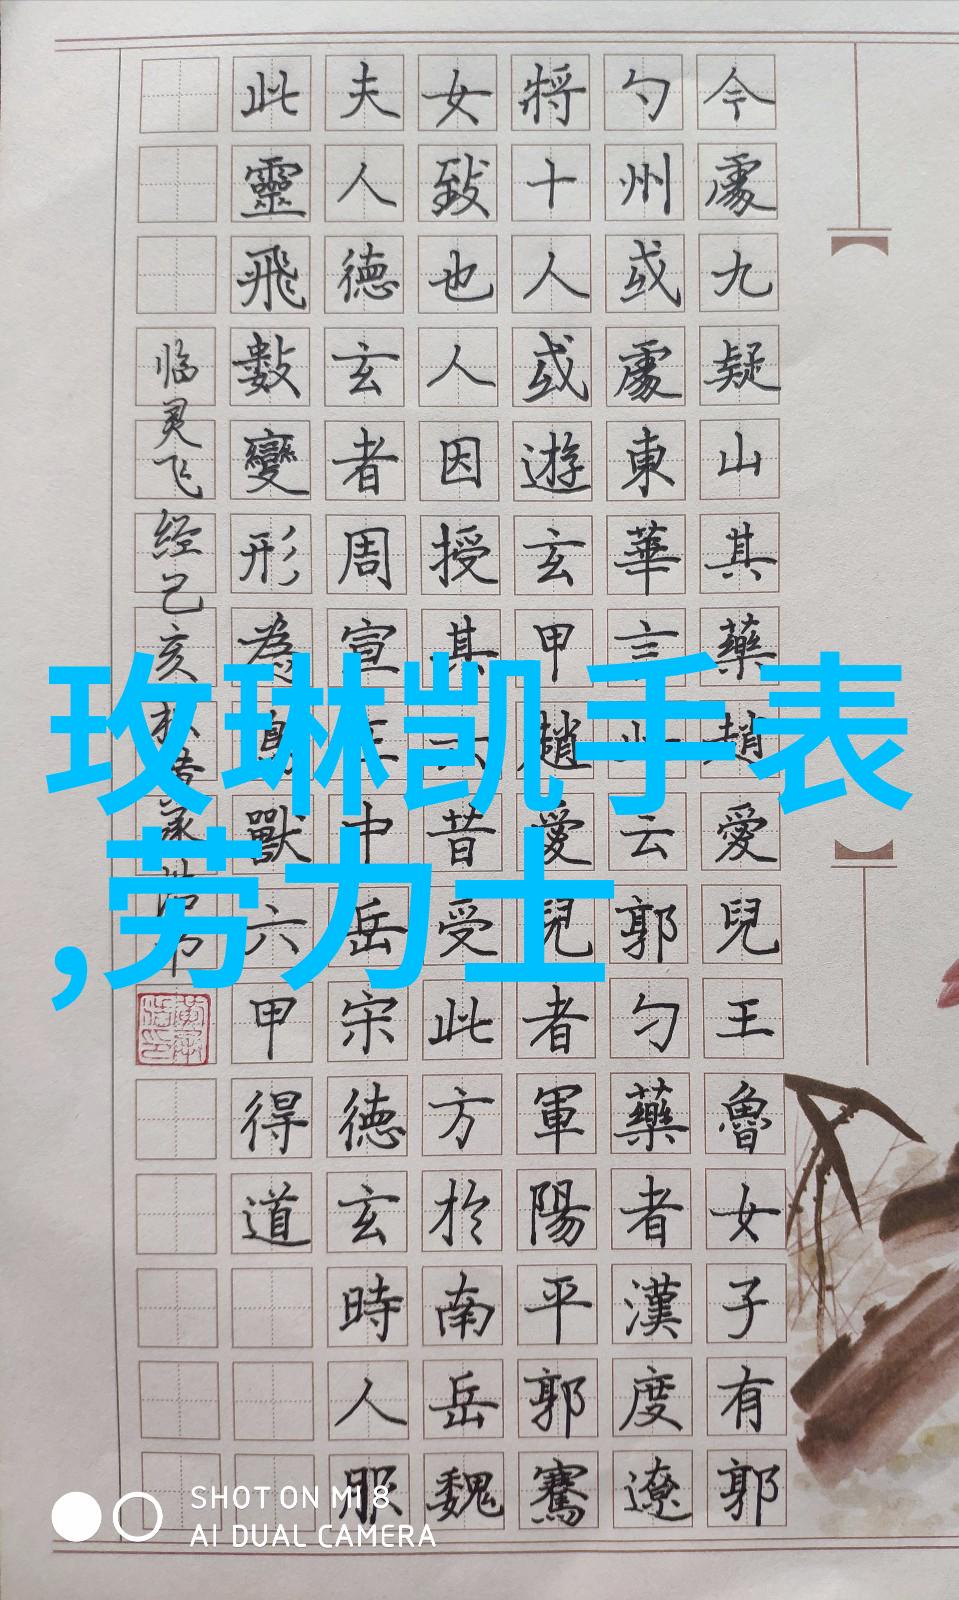 今處九疑山其藥趙愛兒王魯女子有郭
勺州或處東華言此云郭勺藥者漢度遼
將十人或遊玄甲趙愛兒者軍陽平郭騫
女致也人因授其昔受此方於南岳魏
夫人德玄者周宣王中岳宋德玄時人服
此靈飛數變形為獸六甲得道
临灵飞经己亥
玫琳凯手表
,劳力士
SHOT ON MI 8
AI DUAL CAMERA